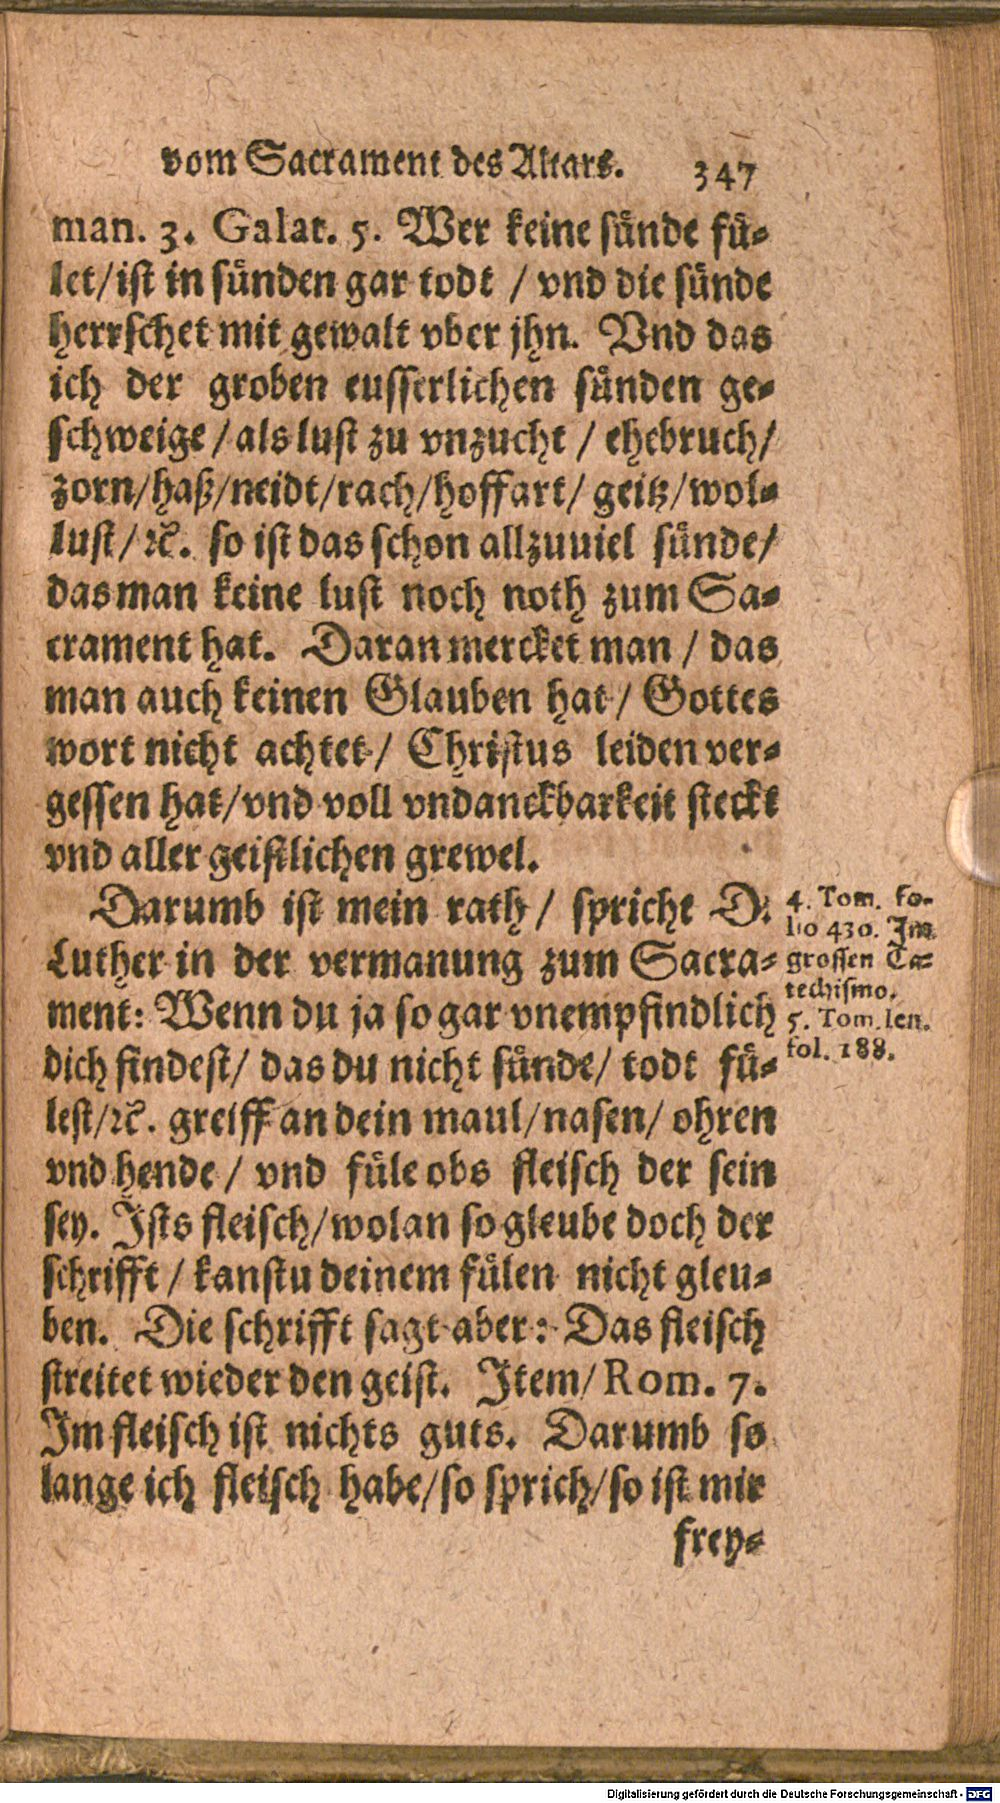 vom Sacrament des Altars. 347
man. 3. Galat. 5. Wer keine sünde fü-
let/ist in sünden gar todt / vnd die sünde
herrschet mit gewalt vber jhn. Vnd das
ich der groben eusserlichen sünden ge-
schweige / als lust zu vnzucht / ehebruch/
zorn/haß/neidt/rach/hoffart/ geitz/wol-
lust/ꝛc. so ist das schon allzuuiel sünde/
das man keine lust noch noth zum Sa-
crament hat. Daran mercket man / das
man auch keinen Glauben hat / Gottes
wort nicht achtet / Christus leiden ver-
gessen hat/vnd voll vndanckbarkeit steckt
vnd aller geistlichen grewel.
Darumb ist mein rath / spricht D.
Luther in der vermanung zum Sacra-
ment: Wenn du ja so gar vnempfindlich
dich findest/ das du nicht sünde/ todt fü-
lest/ꝛc. greiff an dein maul/nasen/ ohren
vnd hende / vnd füle obs fleisch der sein
sey. Ists fleisch/wolan so gleube doch der
schrifft / kanstu deinem fülen nicht gleu-
ben. Die schrifft sagt aber: Das fleisch
streitet wieder den geist. Item/ Rom. 7.
Im fleisch ist nichts guts. Darumb so
lange ich fleisch habe/so sprich/so ist mir
frey-
4. Tom. fo-
lio 430. Im
grossen Ca-
techismo.
5. Tom. Ien.
fol. 188.
Digitalisierung gefördert durch die Deutsche Forschungsgemeinschaft - DFG